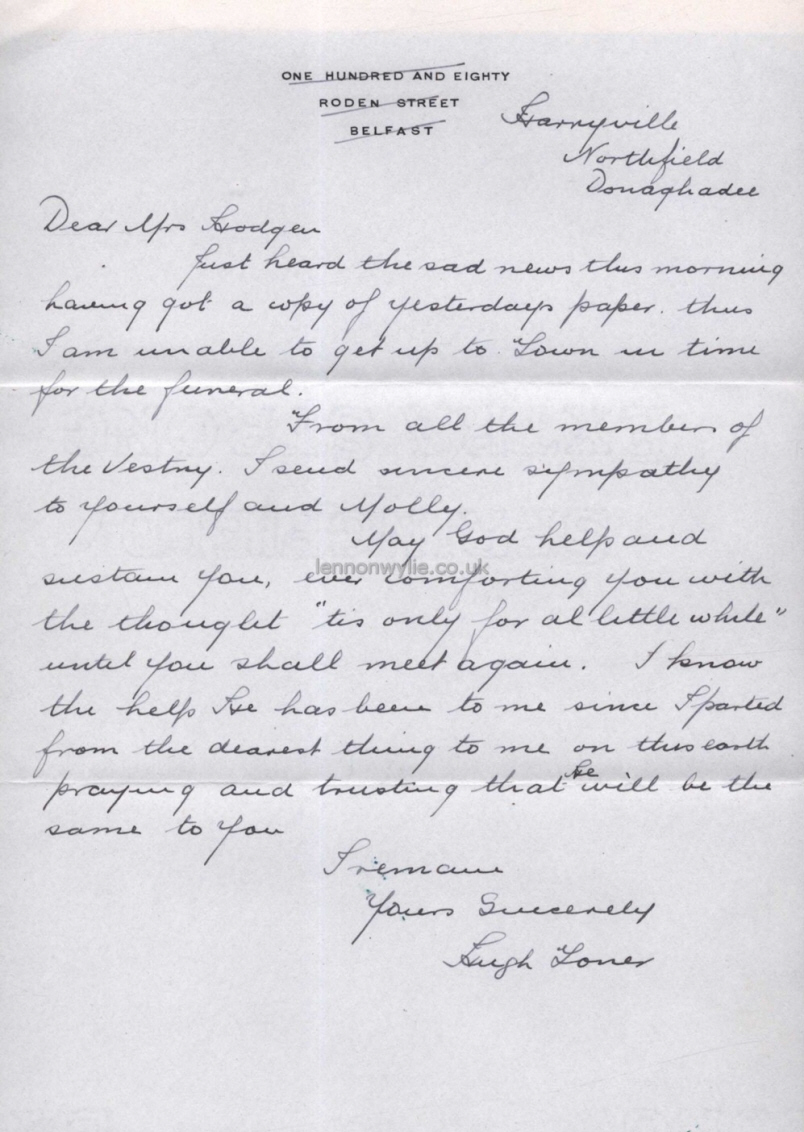 ONE HUNDRED AND EIGHTY
RODEN STREET
BELFAST
Harryville
Northfield
Donaghadee
Dear Mrs Hodgen
Just heard the sad news this morning
having got a copy of yesterdays paper. thus
I am unable to get up to Town in time
for the funeral.
From all the members of
the Vestry. I send sincere sympathy
to yourself and Molly.
May God help and
sustain you, ever comforting you with
the thought "tis only for a little while"
until you shall meet again. I know
the help He has been to me since I parted
from the dearest thing to me on this earth
praying and trusting that He will be the
same to you
I remain
Yours Sincerely
Hugh Toner
lennonwylie.co.uk